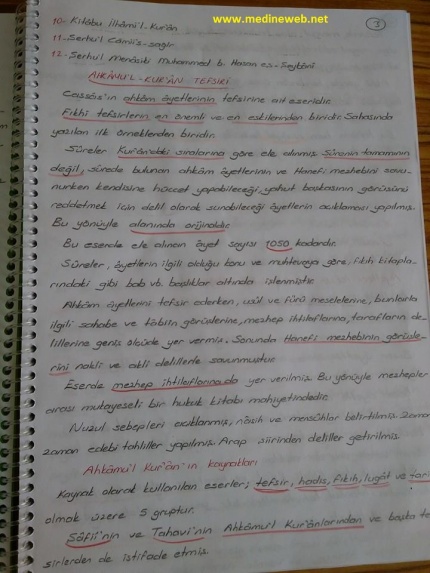 www.medineweb.net
3
10- Kitâbu İlhâmi'l-Kur'ân
11- Şerhu'l Camii's-sağîr
12- Şerhul Menâsik Muhammed b. Hasan es-Şeybânî
AHKÂMU'L-KUR'ÂN TEFSİRİ
Cassâs'ın ahkâm âyetlerinin tefsirine ait eseridir.
Fıkhî tefsirlerin en önemli ve en eskilerinden biridir. Sahasında
yazılan ilk örneklerden biridir.
Sûreler Kur'ân'daki sıralarına göre ele alınmış. Sûrenin tamamının
değil, sûrede bulunan ahkâm âyetlerinin ve Hanefi mezhebini savu-
nurken kendisine hüccet yapabileceği, yahut başkasının görüşünü
reddetmek için delil olarak sunabileceği âyetlerin açıklaması yapılmış.
Bu yönüyle alanında orijinaldir.
Bu eserde ele alınan âyet sayısı 1050 kadardır.
Sûreler, âyetlerin ilgili olduğu konu ve muhtevaya göre, fıkıh kitapla-
rındaki gibi bab vb. başlıklar altında işlenmiştir.
Ahkâm âyetlerini tefsir ederken, usûl ve fürû meselelerine, bunlarla
ilgili sahabe ve tâbiîn görüşlerine, mezhep ihtilaflarına, tarafların de-
lillerine geniş ölçüde yer vermiş. Sonunda Hanefi mezhebinin görüşle-
rini nakli ve akli delillerle savunmuştur.
Eserde mezhep ihtilaflarına da yer verilmiş. Bu yönüyle mezhepler
arası mukayeseli bir hukuk kitabı mahiyetindedir.
Nuzul sebepleri açıklanmış, nâsih ve mensûhlar belirtilmiş. Zaman
zaman edebi tahliller yapılmış. Arap şiirinden deliller getirilmiş.
Ahkâmu'l Kur'ân'ın kaynakları
Kaynak olarak kullanılan eserler; tefsir, hadis, fıkıh, lugât ve tari
olmak üzere 5 gruptur.
Şâfiî'nin ve Tahavi'nin Ahkâmu'l Kur'ânlarından ve başka te
sirlerden de istifade etmiş.